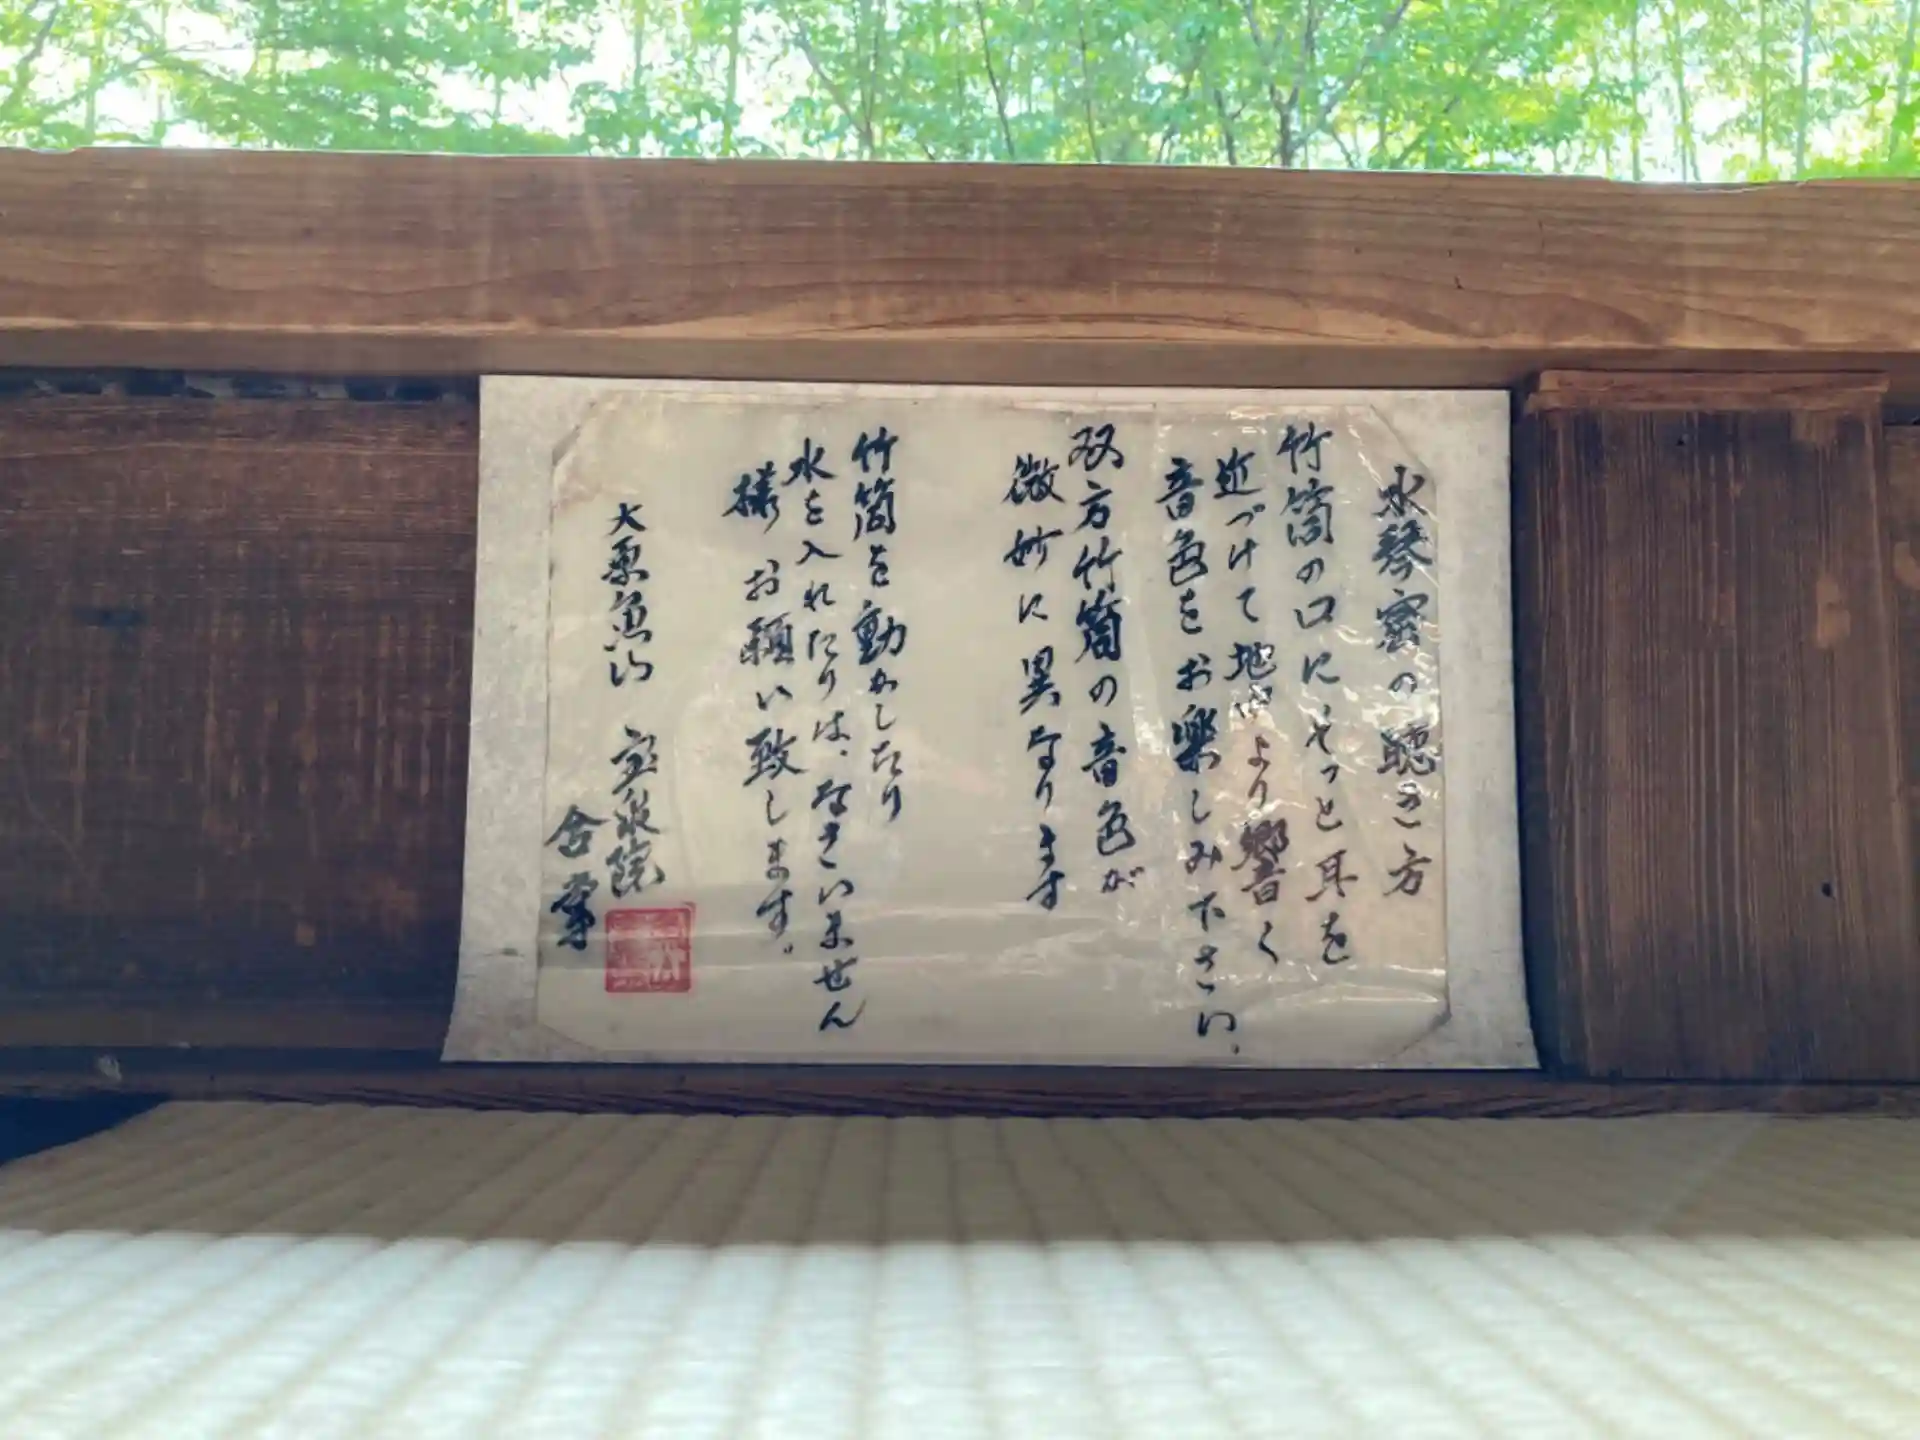 水琴窟の聴き方
竹筒の口にそっと耳を
近づけて地中より響く
音色をお楽しみ下さい、
双方竹筒の音色が
微妙に異なります
竹筒を動かしたり
水を入れたりは、なさいません
様お願い致します。
大原魚山 宝泉院